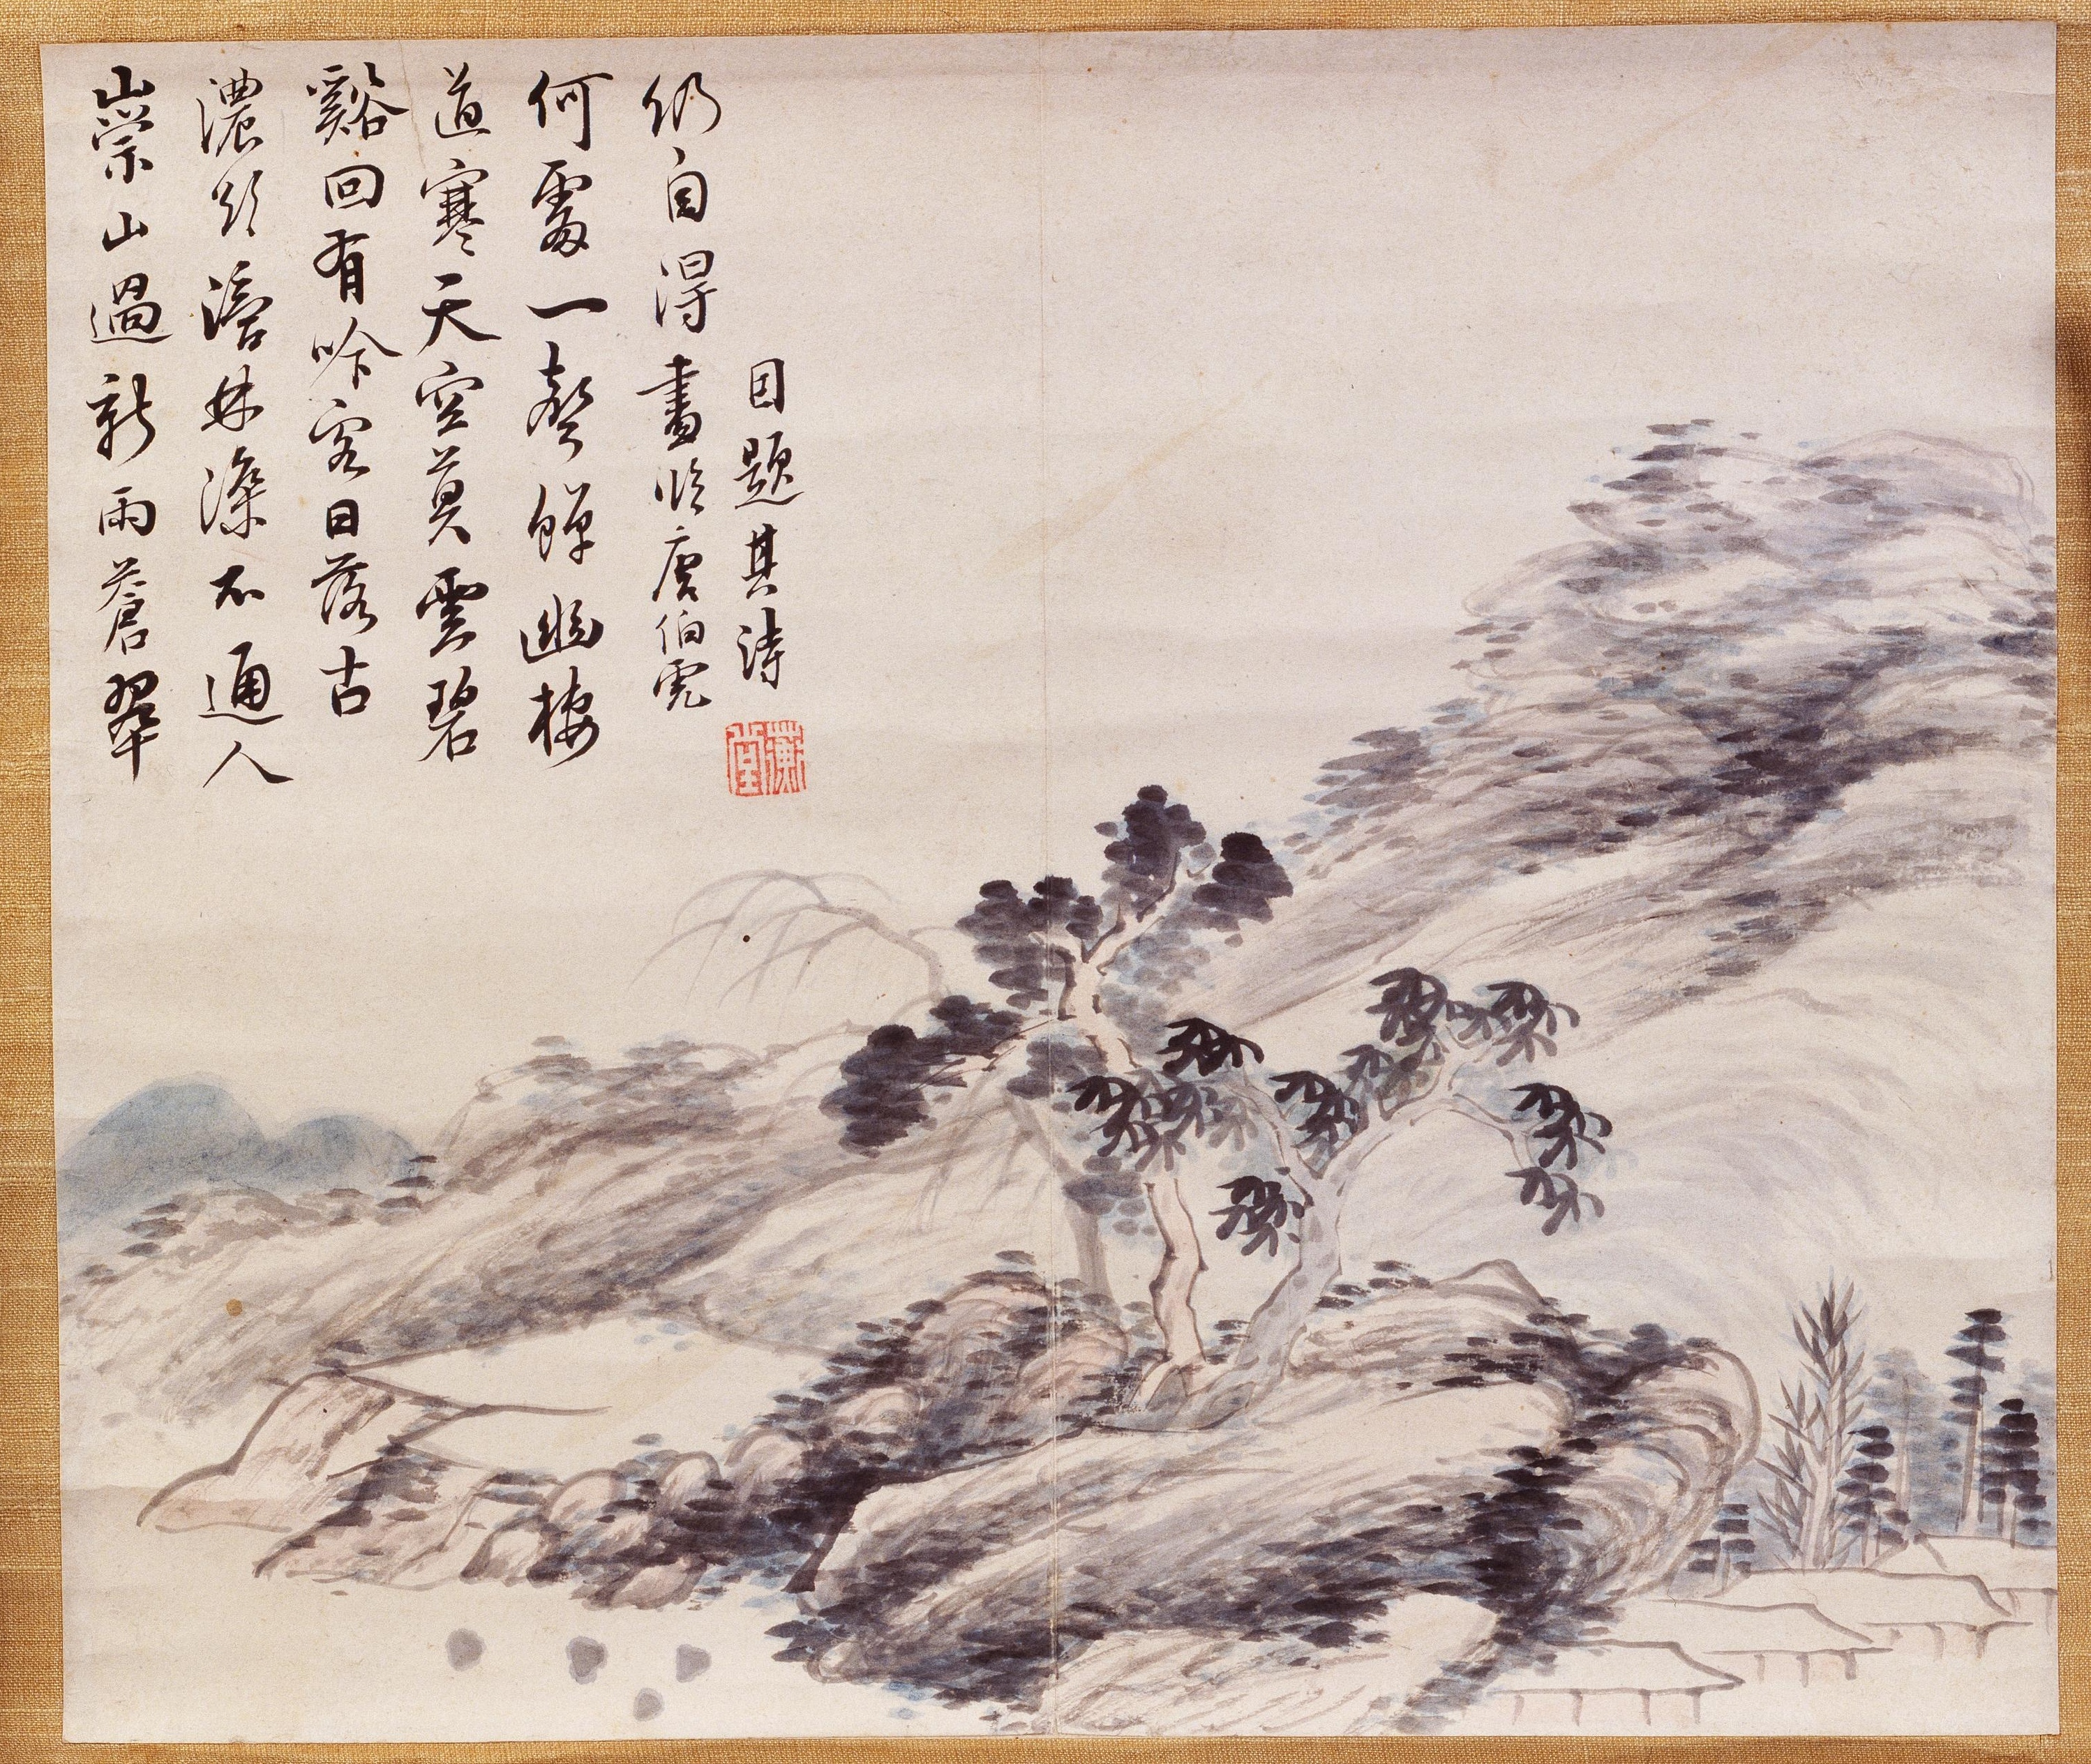 崇山過新雨蒼翠
濃欲滴林深不通人
谿回有吟客日落古
道寒天空莫雲碧
何處一聲蟬幽棲
仍自得畫臨唐伯虎
因題其詩